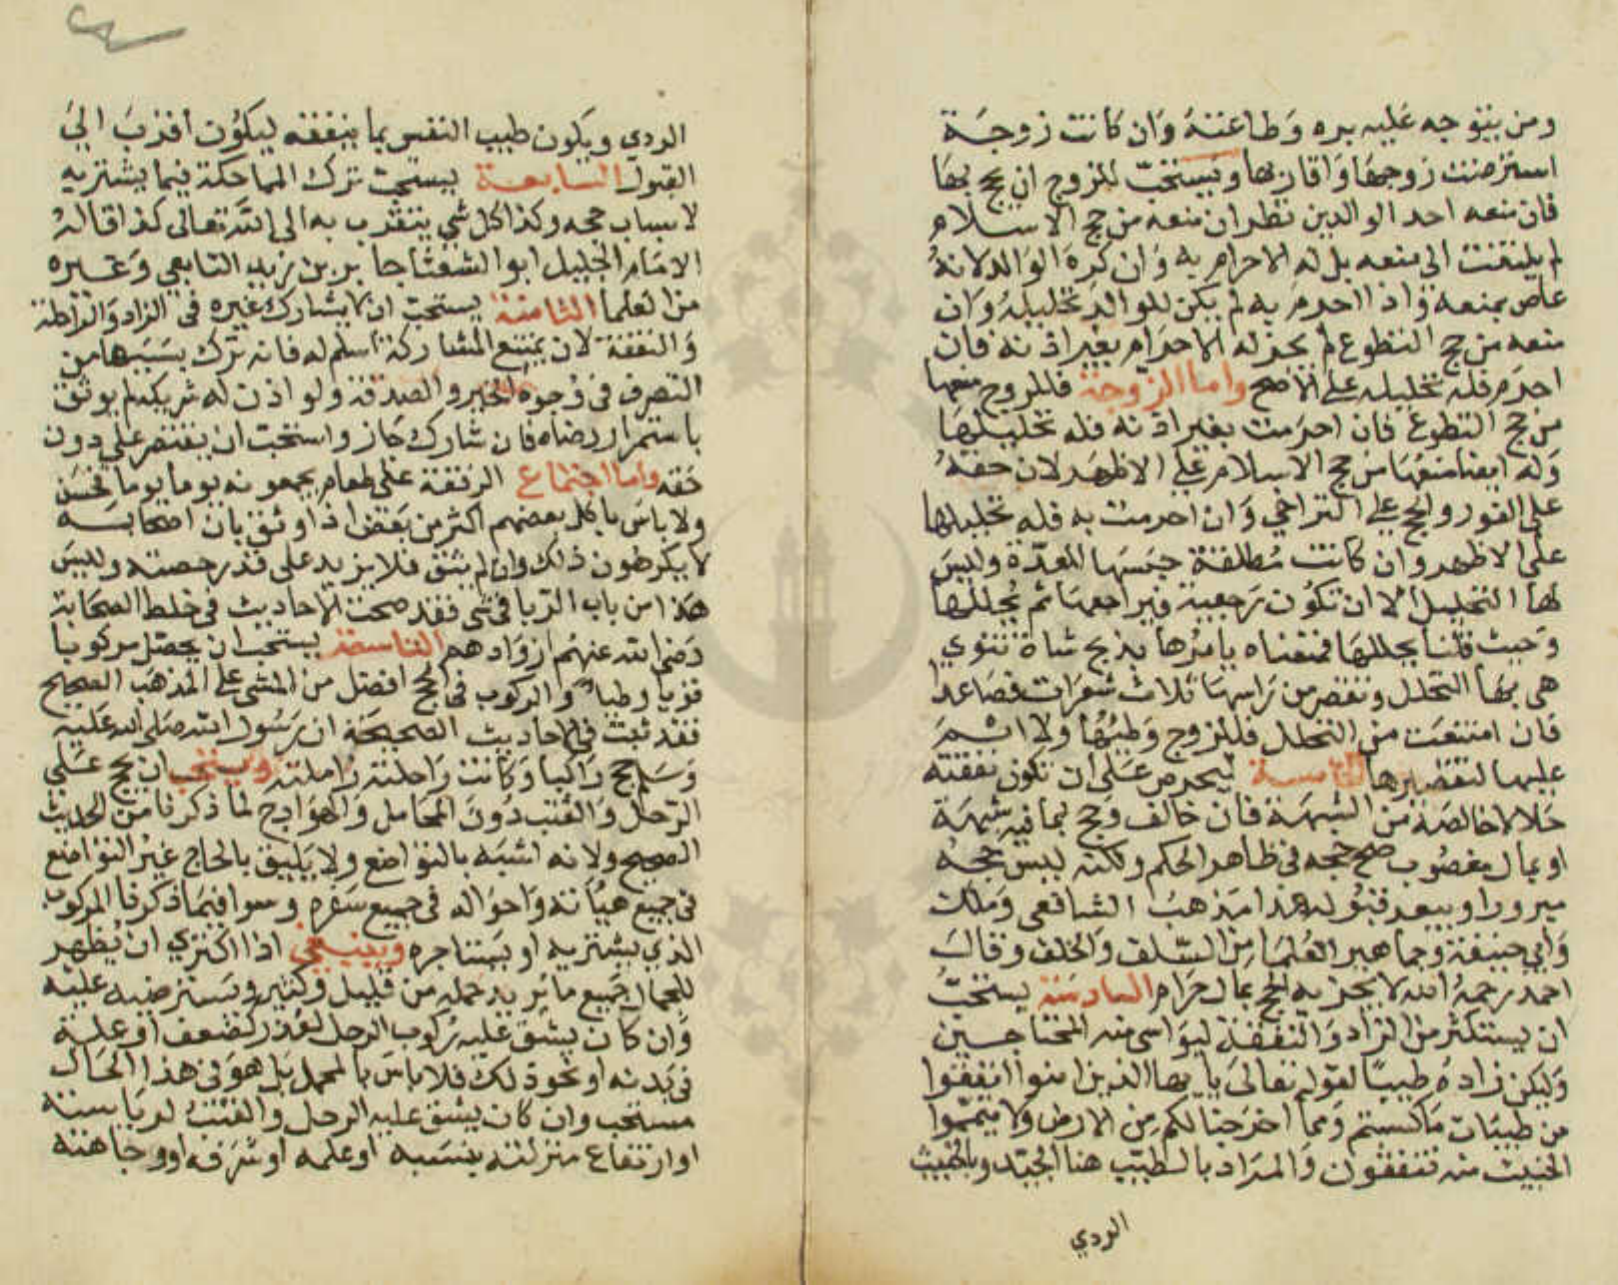 ومن يتوجه عليه بره وطاعته وان كانت زوجة
استرضت زوجها واقاربها ويستحب للزوج ان يحج بها
فان منعه احد الوالدين نظر ان منعه من حج الاسلام
لم يلتفت الى منعه بل له الاحرام به وان كره الوالد لانه
عاص بمنعه واذا احرم به لم يكن للوالد تحليله وان
منعه من حج التطوع لم يجز له الاحرام بغير اذنه فان
احرم فله تحليله على الاصح واما الزوجة فللزوج منعها
من حج التطوع فان احرمت بغير اذنه فله تحليلها
وله ايضا منعها من حج الاسلام على الاظهر لان حقه
على الفور والحج على التراخي وان احرمت به فله تحليلها
على الاظهر وان كانت مطلقة حبسها للعدة وليس
لها التحليل الا ان تكون رجعية فيراجعها ثم يحللها
وحيث قلنا يحللها فمعناه يامرها بذبح شاة تنوي
هي بها التحلل وتقصر من راسها ثلاث شعرات فصاعدا
فان امتنعت من التحلل فللزوج وطيها ولا اثم
عليها لتقصيرها الخامسة ليحرص على ان تكون نفقته
حلالا خالصة من الشبهة فان خالف وحج بما فيه شبهة
او بمال مغصوب صح حجه في ظاهر الحكم ولكنه ليس حجه
مبرورا ويبعد قبوله هذا مذهب الشافعي ومالك
وابي حنيفة وجماهير العلما من السلف والخلف وقال
احمد رحمه الله لا يجزيه الحج بمال حرام السادسة يستحب
ان يستكثر من الزاد والنفقة ليواسي منه المحتاجين
وليكن زاده طيبا لقوله تعالى يا يها الذين امنوا انفقوا
من طيبات ما كسبتم ومما اخرجنا لكم من الارض ولا تيمموا
الخبيث منه تنفقون والمراد بالطيب هنا الجيد وبالخبيث
الردي
الردي ويكون طيب النفس بما ينفقه ليكون اقرب الى
القبول السابعة يستحب ترك المماحكة فيما يشتريه
لاسباب حجه وكذا كل شي يتقرب به الى الله تعالى كذا قاله
الامام الجليل ابو الشعثا جابر بن زيد التابعي وغيره
من العلما الثامنة يستحب ان لا يشارك غيره في الزاد والراحلة
والنفقة لان يمتنع المشاركة اسلم له فانه ترك بسببها من
التصرف في وجوه الخير والصدقة ولو اذن له شريكه لم يوثق
باستمرار رضاه فان شارك جاز واستحب ان يقتصر على دون
حقه واما اجتماع الرفقة على طعام يجمعونه يوما يوما فحسن
ولا باس باكل بعضهم اكثر من بعض اذا وثق بان اصحابه
لا يكرهون ذلك وان لم يثق فلا يزيد على قدر حصته وليس
هذا من باب الربا في شي فقد صحت الاحاديث في خلط الصحابة
رضي الله عنهم ازوادهم التاسعة يستحب ان يحصل مركوبا
قويا وطيا والركوب في الحج افضل من المشي على المذهب الصحيح
فقد ثبت في الاحاديث الصحيحة ان رسول الله صلى الله عليه
وسلم حج راكبا وكانت راحلته زاملته ويستحب ان يحج على
الرحل والقتب دون المحامل والهوادج لما ذكرنا من الحديث
الصحيح ولانه اشبه بالتواضع ولا يليق بالحاج غير التواضع
في جميع هيأته واحواله في جميع سفره وسوا فيما ذكرنا المركوب
الذي يشتريه او يستاجره وينبغي اذا اكتري ان يظهر
للجمال جميع ما يريد حمله من قليل وكثير ويسترضيه عليه
وان كان يشق عليه ركوب الرحل لعذر كضعف او علة
في بدنه او نحو ذلك فلا باس بالمحمل بل هو في هذا الحال
مستحب وان كان يشق عليه الرحل والقتب لرياسته
او ارتفاع منزلته بنسبه او علمه او شرفه او وجاهته